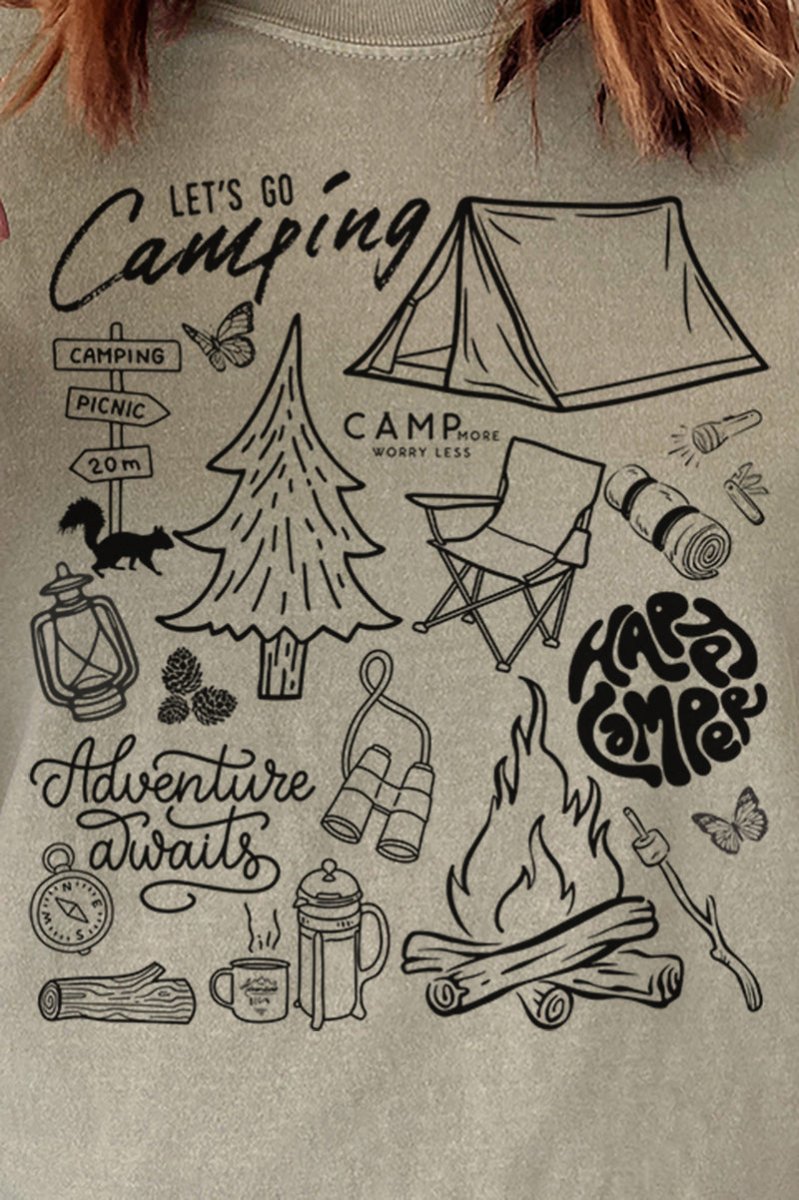 LET'S GO
Camping
CAMPING
PICNIC
20m
CAMP MORE
WORRY LESS
HAPPY
CAMPER
Adventure
awaits
N
E
S
W